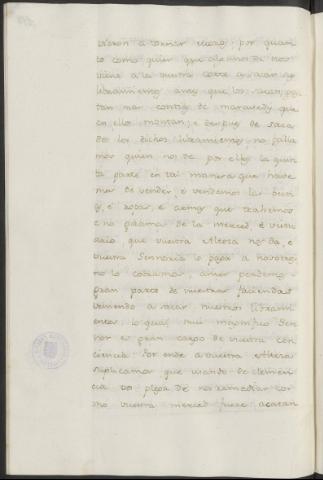 vieron a tornar vuero; por quan
to como quier que algunos de nos
viene a la vuestra corte a sacar sus
libramientos antes que los saca, gas
tan mas contia de maravedis que
en ellos montan; e despues de saca
do los dichos libramientos no falla
mos quien nos de por ellos la quin
ta parte en tal manera que have
mos de vender, e vendemos las besti
as, e ropas, e armas que trahemos
e no podamos de la merced, e vistu
ario, que vuestra Alteza nos da, e
vuestra Sennoria lo paga a nosotros
no lo cobramos, antes perdemos
gran parte de nuestras faciendas
veniendo a sacar nuestros libramien
entos, lo qual mui magnifico Sen
nor es gran cargo de vuestra con
ciencia: Por ende a vuestra Alteza
suplicamos que usando de clemen
cia vos plega de nos remediar co
mo vuestra merced fuere, acatan